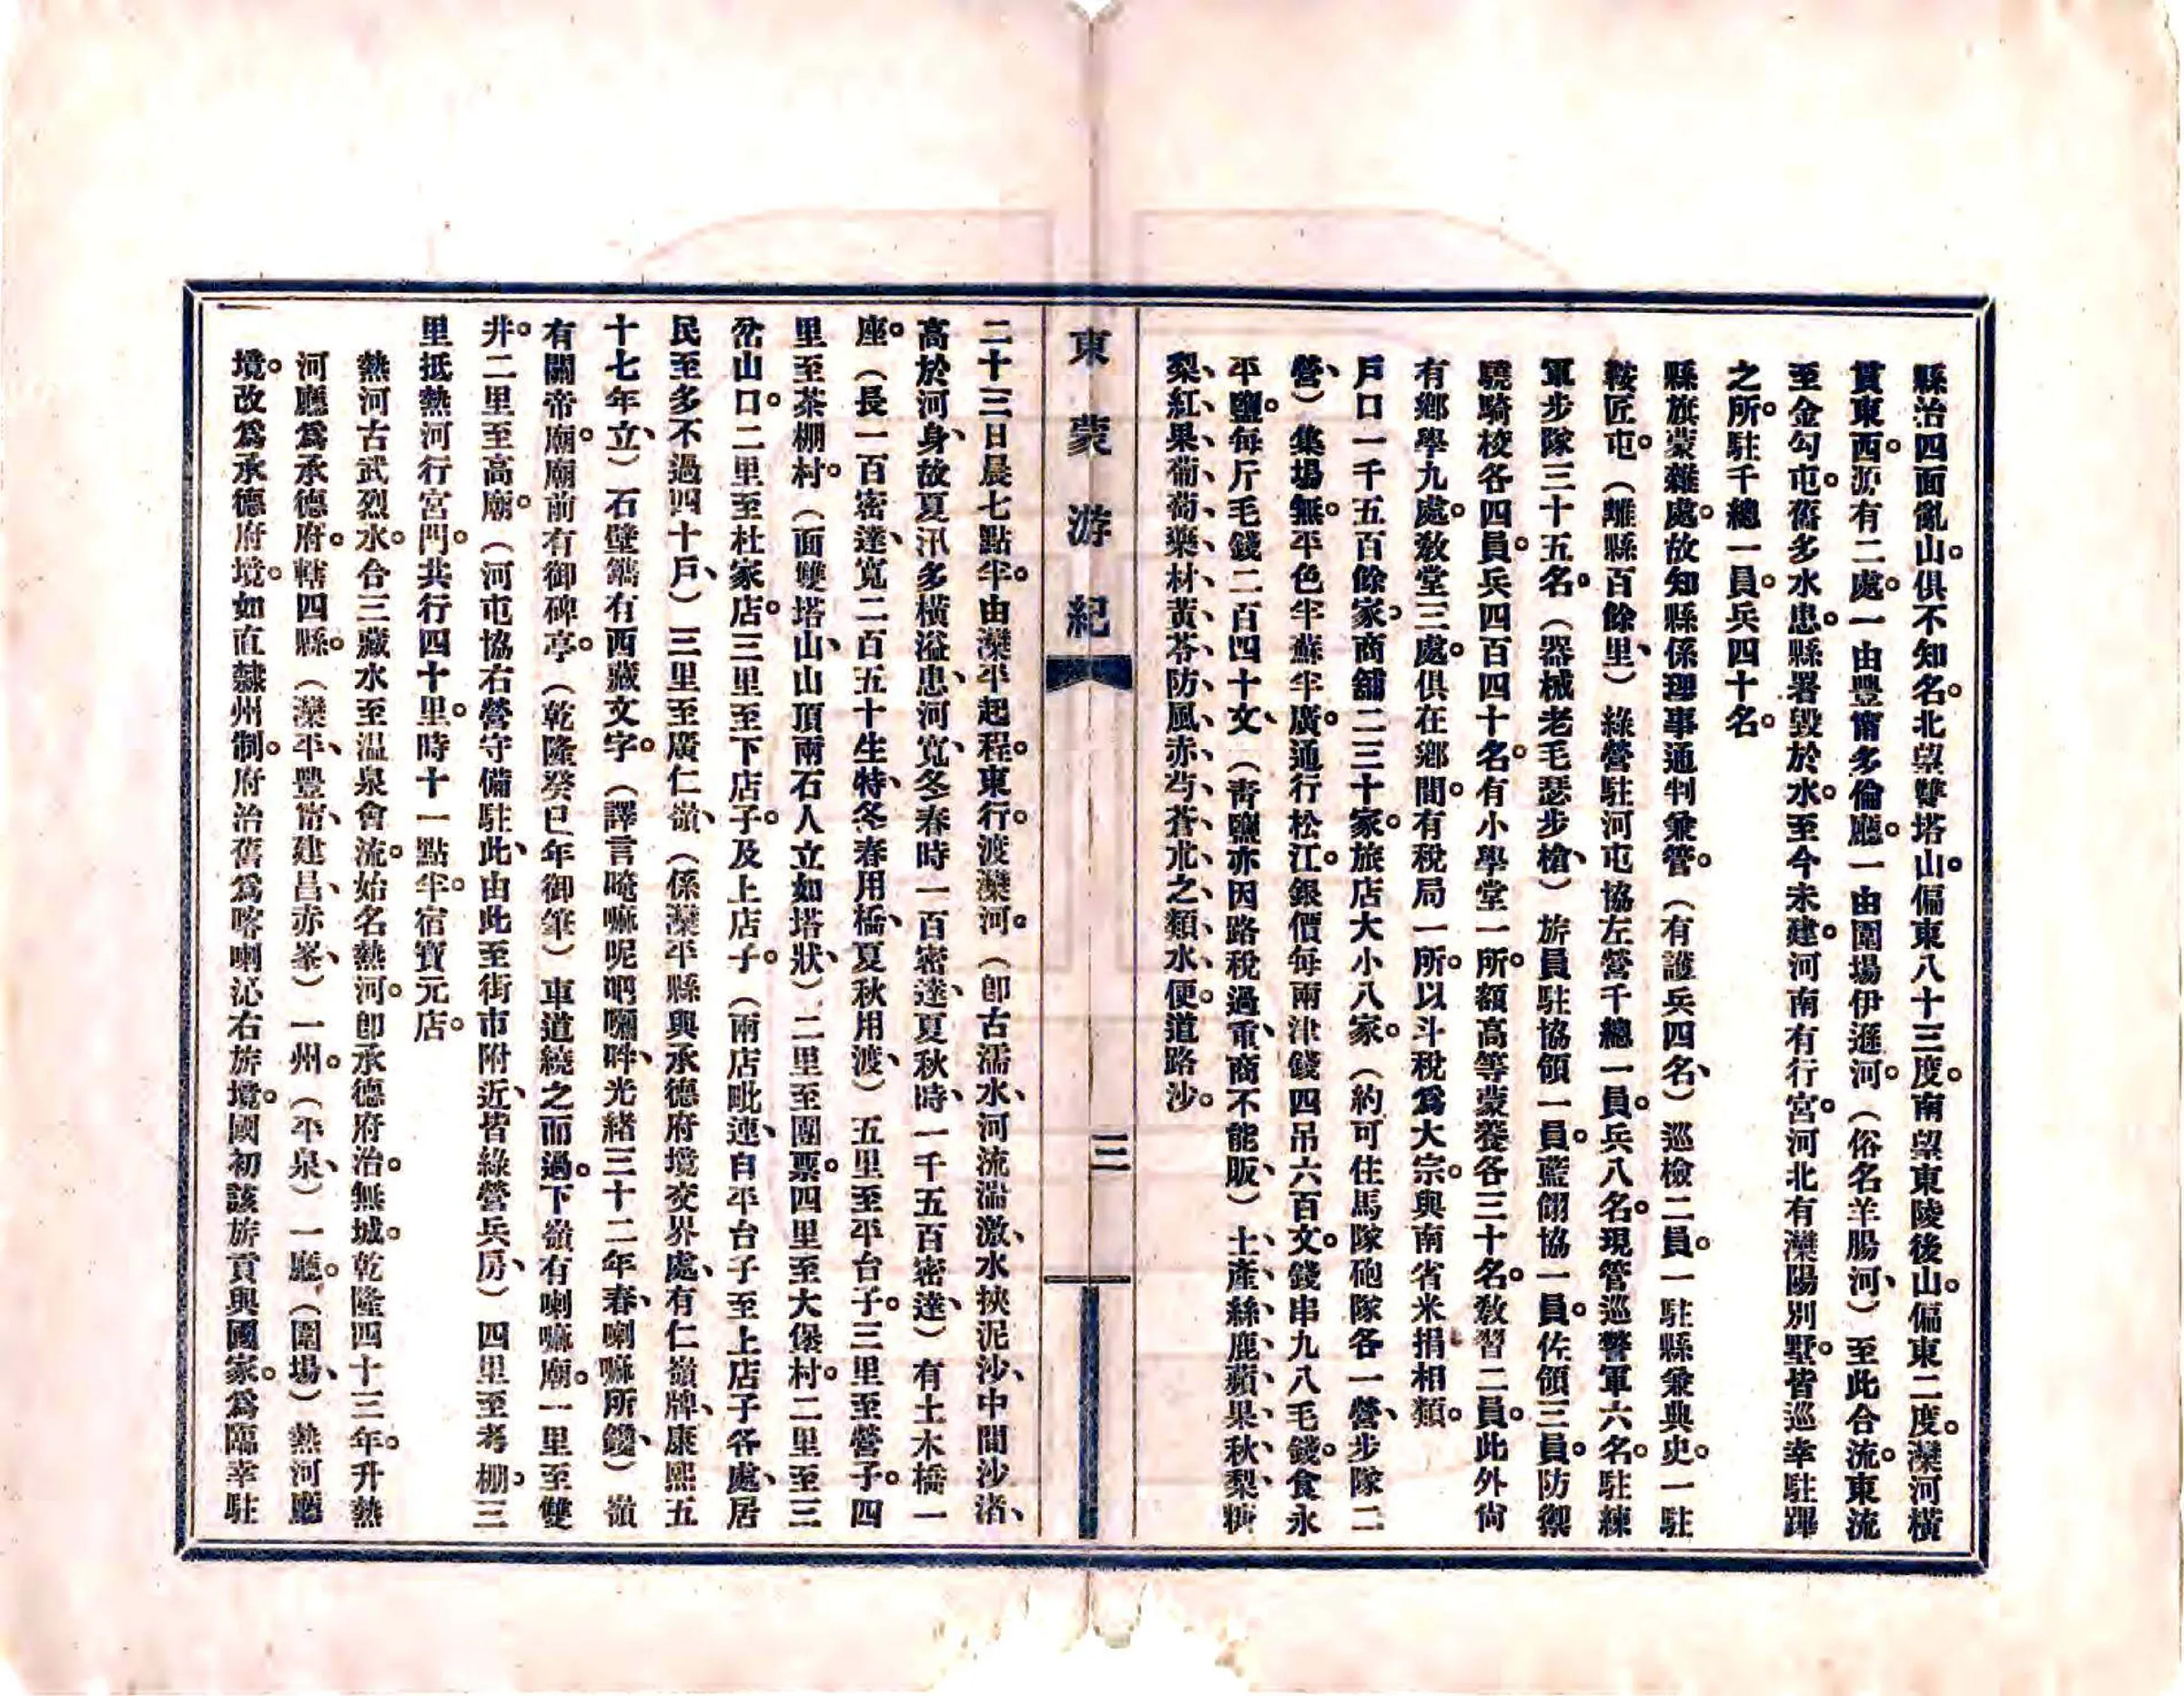 縣治四面亂山。俱不知名。北望雙塔山。偏東八十三度。南望東陵後山。偏東二度。灤河橫
貫東西。源有二處。一由豐甯多倫廳。一由圍場伊遜河。（俗名羊腸河、）至此合流。東流
至金勾屯。舊多水患。縣署毀於水。至今未建。河南有行宮。河北有灤陽別墅。皆巡幸駐蹕
之所。駐千總一員。兵四十名。
縣旗蒙雜處。故知縣係理事通判兼管。（有護兵四名、）巡檢二員。一駐縣兼典史。一駐
鞍匠屯。（離縣百餘里、）綠營駐河屯協左營千總一員。兵八名。現管巡警軍六名。駐練
軍步隊三十五名。（器械老毛瑟步槍、）旂員駐協領一員。藍翎協一員。佐領三員。防禦
驍騎校各四員。兵四百四十名。有小學堂一所。額高等蒙養各三十名。敎習二員。此外尙
有鄉學九處。敎堂三處。俱在鄉間。有稅局一所。以斗稅爲大宗。與南省米捐相類。
戶口一千五百餘家。商舖二三十家。旅店大小八家。（約可住馬隊砲隊各一營、步隊二
營、）集場無。平色牢蘇牢廣。通行松江。銀價每兩津錢四吊六百文。錢串九八毛錢。食永
平鹽。每斤毛錢二百四十文、（靑鹽亦因路稅過重、商不能販、）土產、絲、鹿、蘋果、秋梨、糖
梨、紅果、葡萄、藥材、黃芩、防風、赤芍、蒼朮之類、水便。道路沙。
東蒙游紀
三
二十三日晨七點牢。由灤平起程。東行。渡灤河。（卽古濡水、河流湍激、水挾泥沙、中間沙渚、
高於河身、故夏汛多橫溢患、河寬、冬春時一百密達、夏秋時、一千五百密達、）有土木橋一
座。（長一百密達、寬二百五十生特、冬春用橋、夏秋用渡、）五里至平台子。三里至營子。四
里至茶棚村。（面雙塔山、山頂兩石人立如塔狀、）二里至團票。四里至大堡村。二里至三
岔山口。二里至杜家店。三里至下店子。及上店子。（兩店毗連、自平台子至上店子各處、居
民至多不過四十戶、）三里至廣仁嶺、（係灤平縣與承德府境交界處、有仁嶺牌、康熙五
十七年立、）石壁鐫有西藏文字。（譯言唵嘛呢吧嘞吽、光緒三十二年春、喇嘛所鑱、）嶺
有關帝廟。廟前有御碑亭。（乾隆癸巳年御筆）車道繞之而過。下嶺有喇嘛廟。一里至雙
井。二里至高廟。（河屯協右營守備駐此、由此至街市附近、皆綠營兵房、）四里至考棚。三
里抵熱河行宮門。共行四十里。時十一點牢。宿寶元店。
熱河古武烈水。合三藏水至温泉會流。始名熱河。卽承德府治。無城。乾隆四十三年。升熱
河廳爲承德府。轄四縣。（灤平、豐甯、建昌、赤峯、）一州。（平泉、）一廳。（圍場、）熱河廳
境。改爲承德府境。如直隸州制。府治舊爲喀喇沁右旂境。國初該旂貢與國家。爲臨幸駐